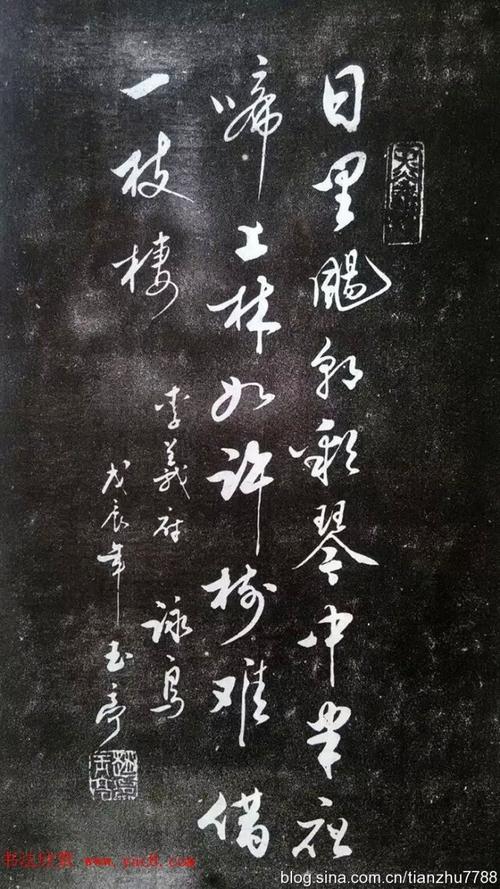 日里颺朝彩琴中半夜
啼上林如许树难借
一枝棲
李義府 詠烏
戊辰年玉亭
书法欣赏 www.yac8.com
blog.sina.com.cn/tianzhu7788